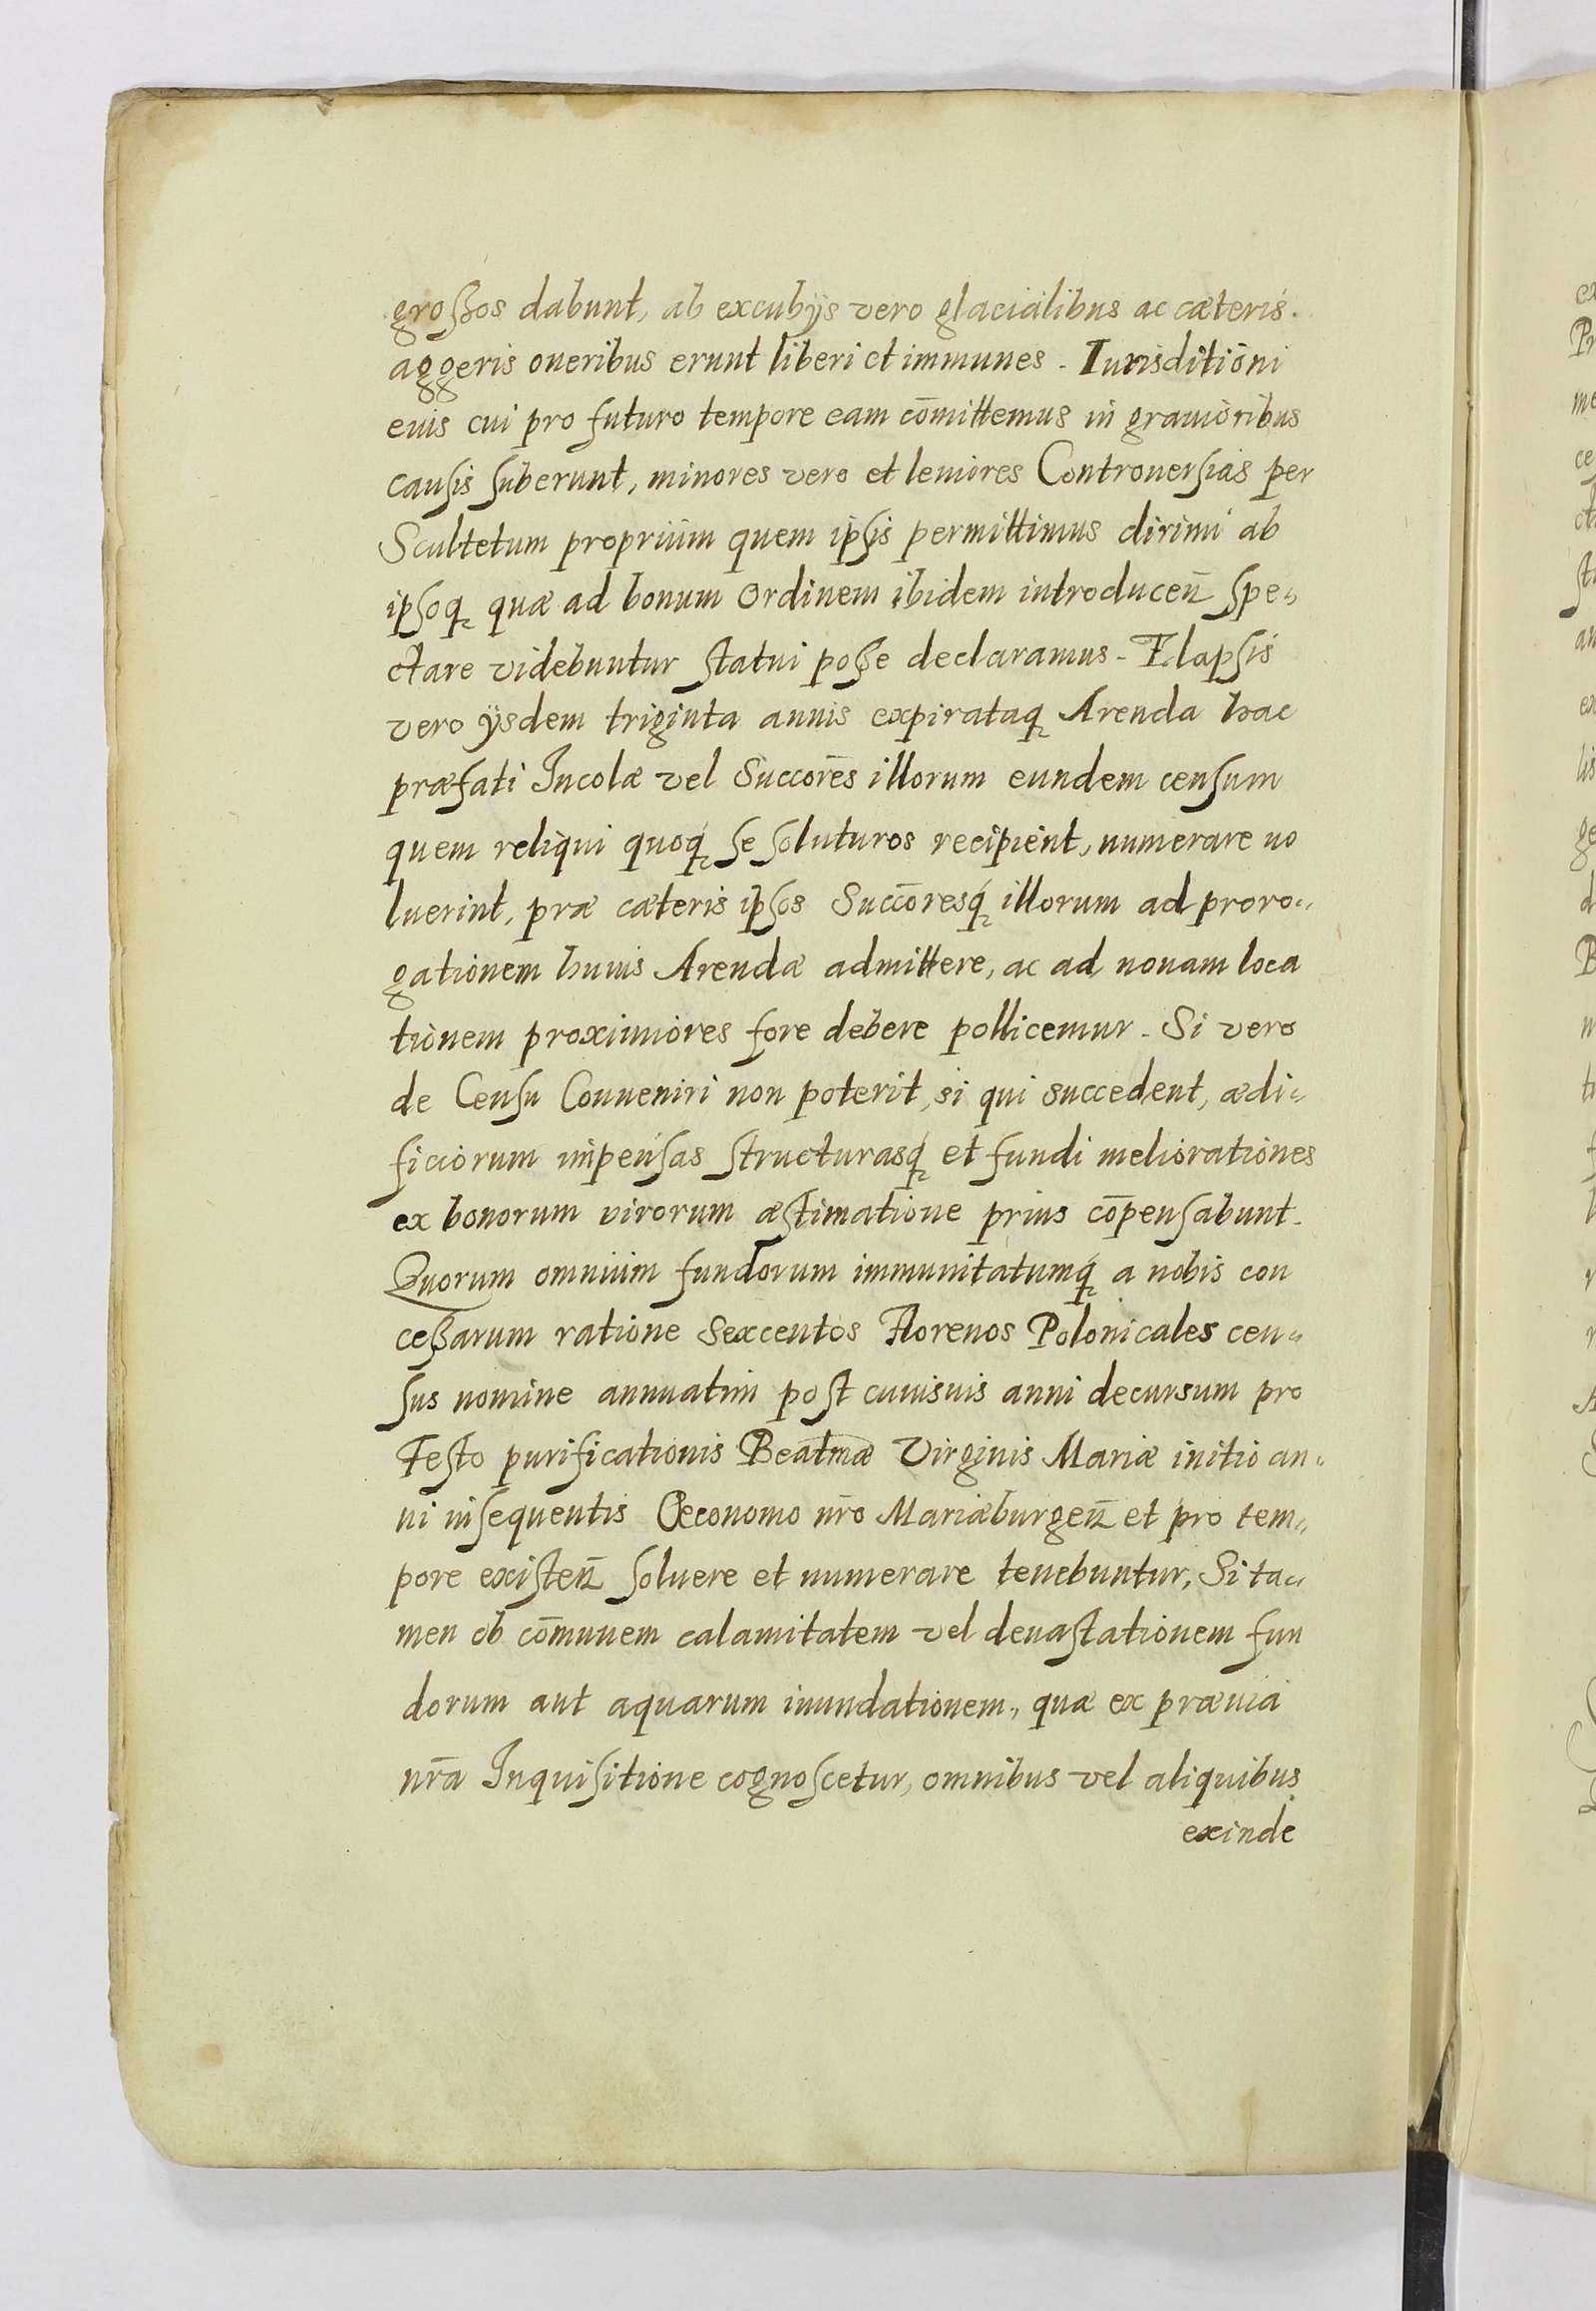 großos dabunt, ab excubijs vero glacialibus ac cæteris.
aggeris oneribus erunt liberi et immunes. Iurisditioni
eius cui pro futuro tempore eam com̄ittemus in grauioribus
causis suberunt, minores vero et leuiores Controuersias per
Scultetum proprium quem ipsis permittimus dirimi ab
ipsoq, quæ ad bonum ordinem ibidem introducen̄ spe-
ctare videbuntur statui poße declaramus. Elapsis
vero ijsdem triginta annis expirataq, Arenda hac
præfati Incolæ vel Succor̄es illorum eundem censum
quem reliqui quoq, se soluturos recipient, numerare uo
luerint, præ cæteris ipsos Succ̄oresq, illorum ad proro-
gationem huius Arendæ admittere, ac ad nouam loca
tionem proximiores fore debere pollicemur. Si vero
de Censu Conueniri non poterit, si qui succedent, ædi-
ficiorum impensas structurasq, et fundi meliorationes
ex bonorum virorum æstimatione prius cōpensabunt.
Quorum omnium fundorum immunitatumq, a nobis con
ceßarum ratione Sexcentos Florenos Polonicales cen-
sus nomine annuatim post cuiusuis anni decursum pro
Festo purificationis Beatm̄æ Virginis Mariæ initio an-
ni insequentis Œconomo nr̄o Mariæburgen̄ et pro tem-
pore existen̄ soluere et numerare tenebuntur, Si ta-
men ob com̄unem calamitatem vel deuastationem fun
dorum aut aquarum inundationem, quæ ex præuia
nr̄a Inquisitione cognoscetur, omnibus vel aliquibus
exinde